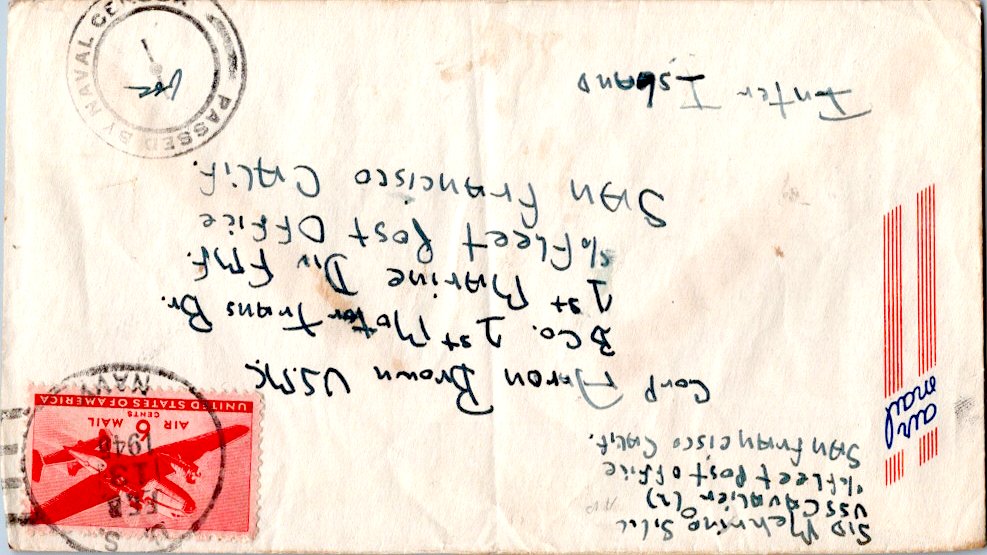 SID Mehring S1/c
USS CAVALIER (2)
c/o Fleet Post office
SAN francisco CALif.
air
mail
U. S.
FEB
13
194
NAVY
AIR 6 MAIL
CENTS
UNITED STATES OF AMERICA
Corp Arron Brown U.S.M.C
B Co. 1st Motor Trans Br.
1st MArine Div FMF.
c/o Fleet Post Office
SAN Francisco CALif.
Inter IslAND
PASSED BY NAVAL CENSOR